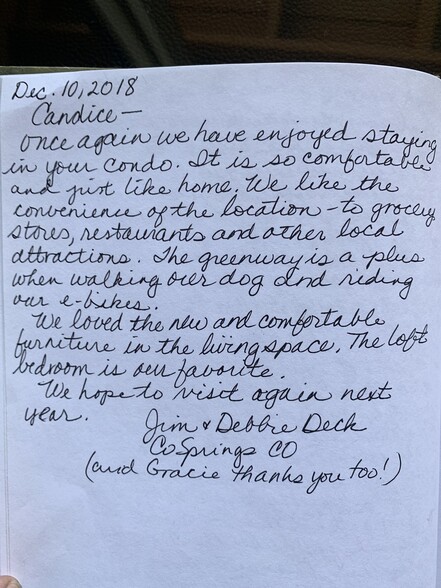 Dec. 10, 2018
Candice—
Once again we have enjoyed staying
in your condo. It is so comfortable
and just like home. We like the
convenience of the location - to grocery
stores, restaurants and other local
attractions. The greenway is a plus
when walking our dog and riding
our e-bikes.
We loved the new and comfortable
furniture in the living space. The loft
bedroom is our favorite.
We hope to visit again next
year.
Jim & Debbie Deck
CoSprings CO
(and Gracie thanks you too!)